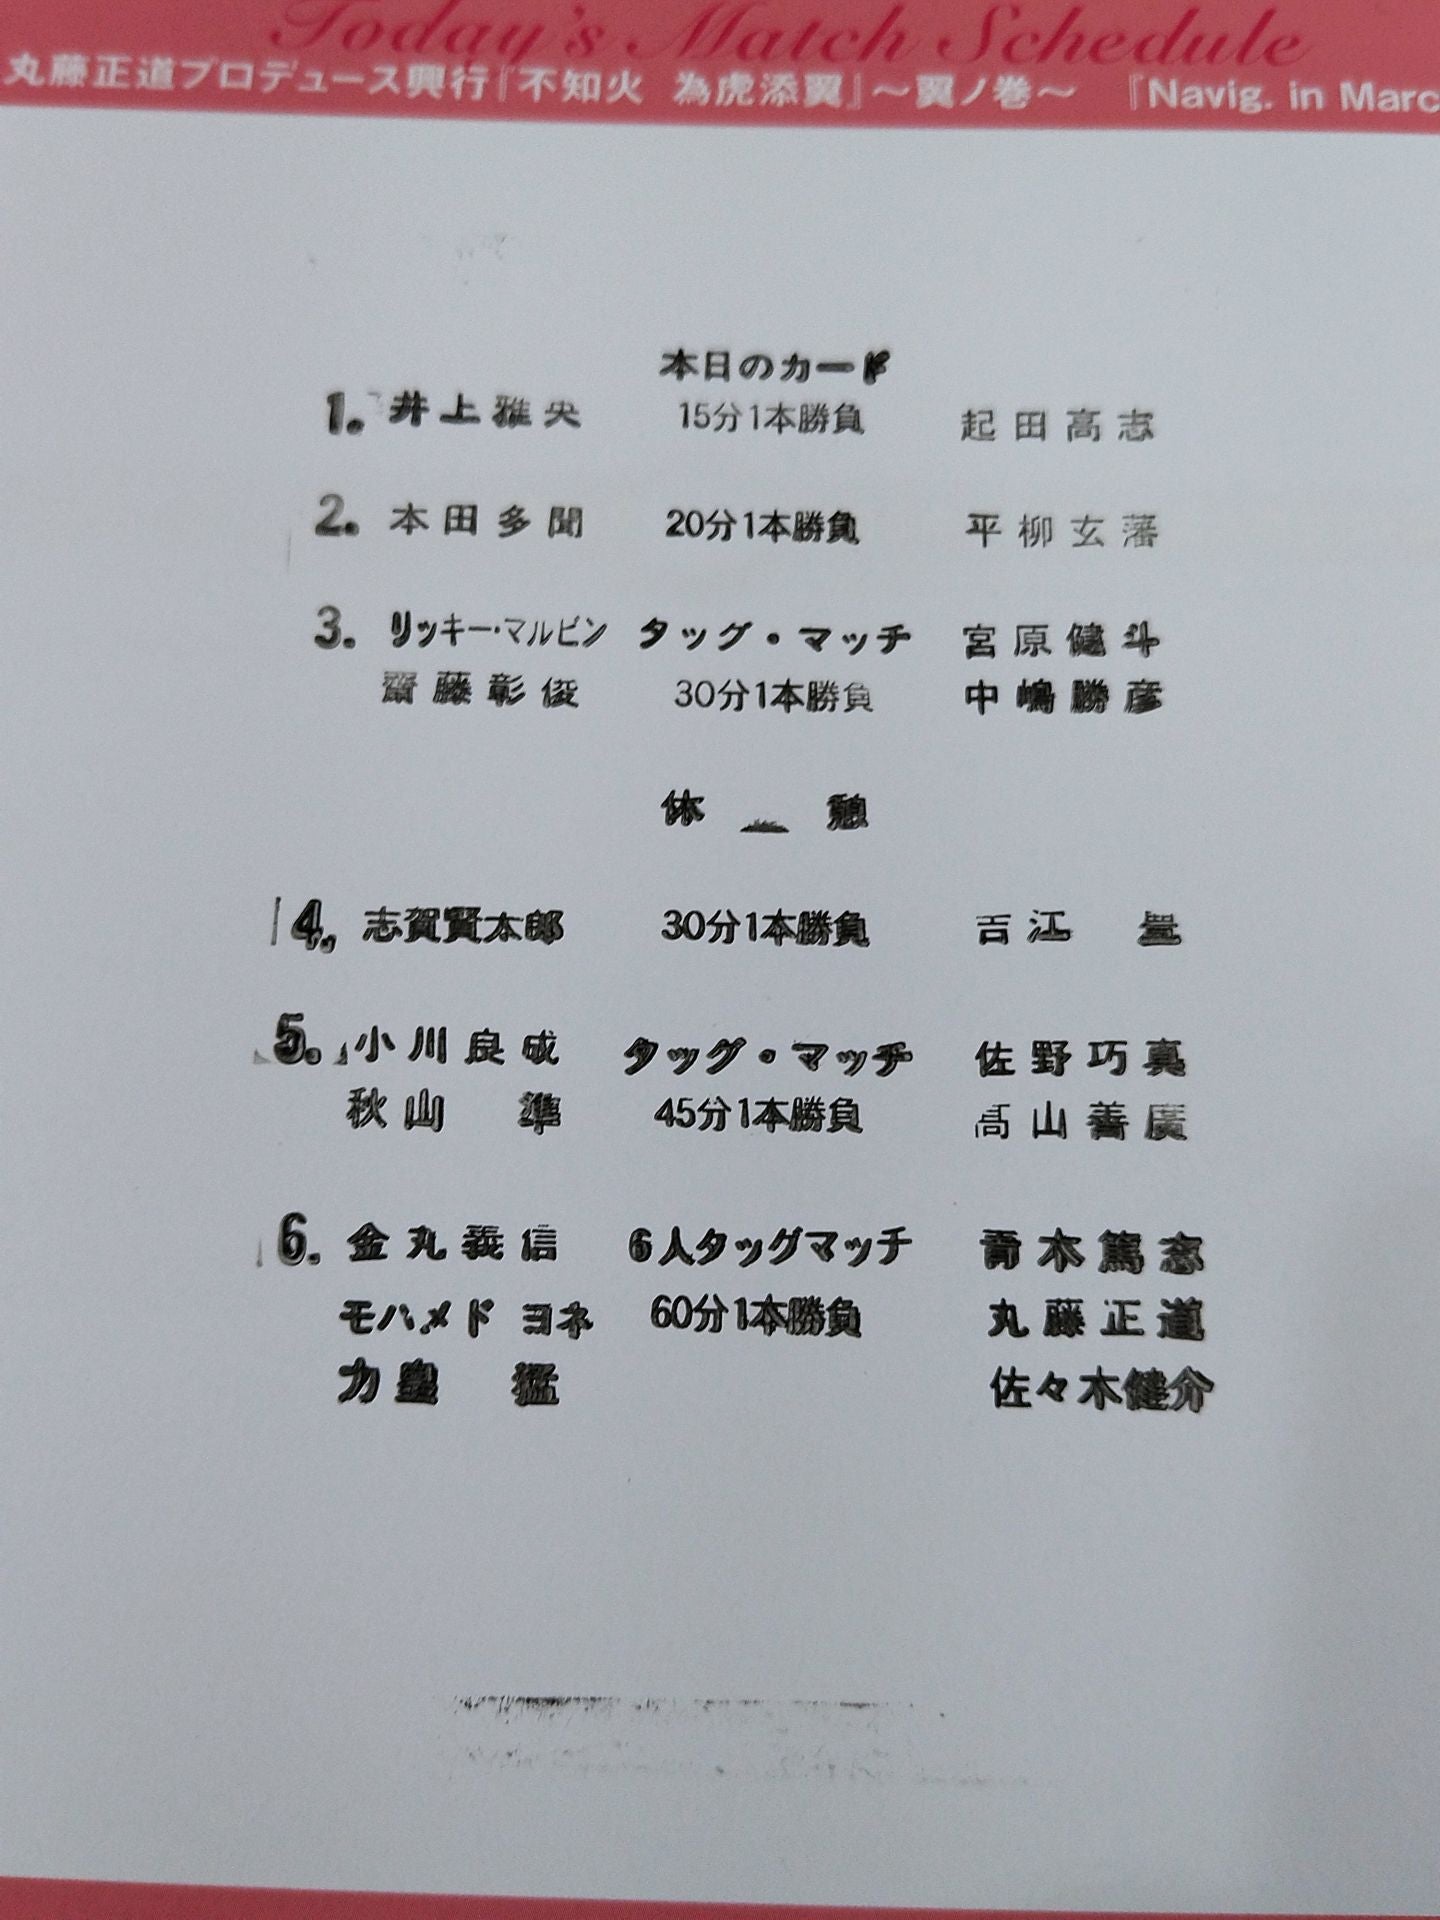 Today's Match Schedule
丸藤正道プロデュース興行『不知火 為虎添翼』〜翼ノ巻〜 『Navig. in Marc
本日のカード
1. 井上雅央 15分1本勝負 起田高志
2. 本田多聞 20分1本勝負 平柳玄藩
3. リッキー・マルビン タッグ・マッチ 宮原健斗
齋藤彰俊 30分1本勝負 中嶋勝彦
休 憩
4. 志賀賢太郎 30分1本勝負 吉江 豊
5. 小川良成 タッグ・マッチ 佐野巧真
秋山 準 45分1本勝負 高山善廣
6. 金丸義信 6人タッグマッチ 青木篤志
モハメド ヨネ 60分1本勝負 丸藤正道
力皇 猛 佐々木健介